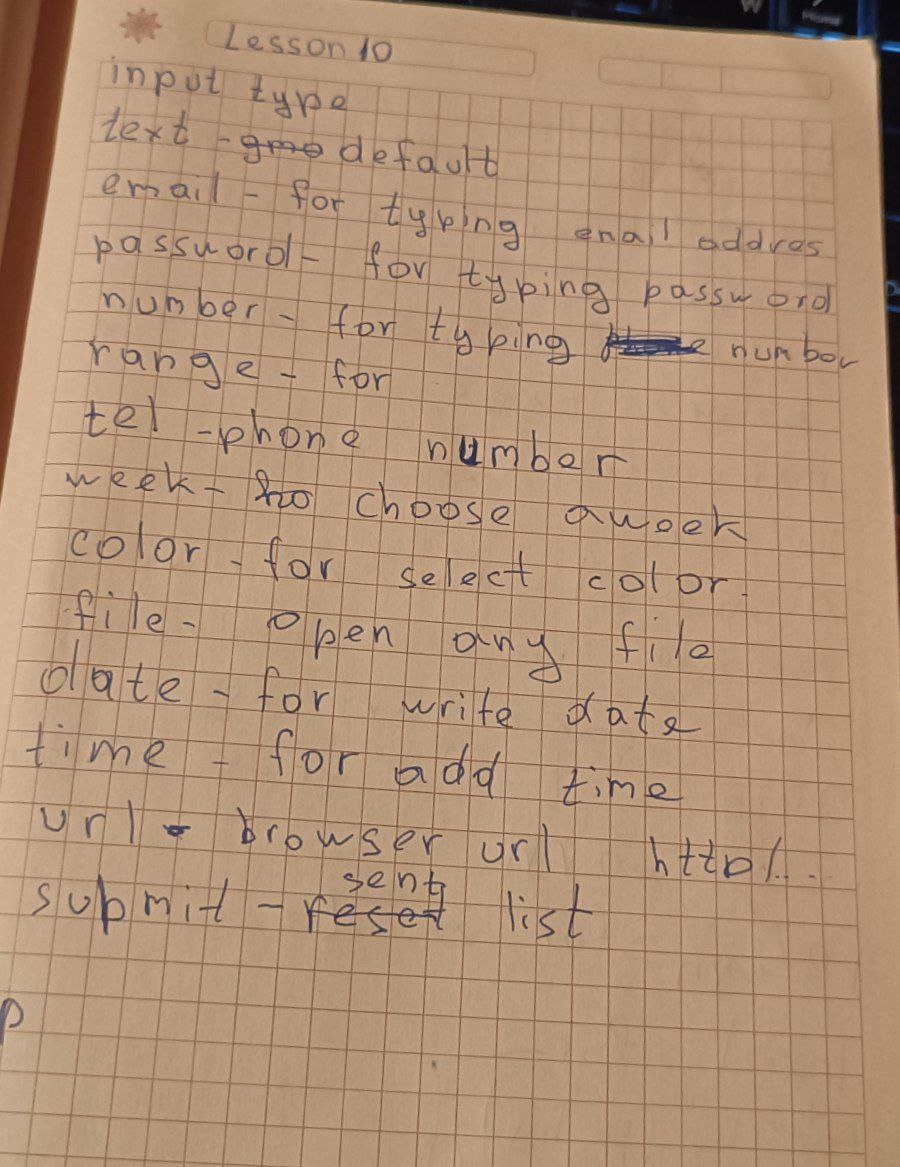 Lesson 10
input type
text - default
email - for typing email addres
password - for typing password
number - for typing number
range - for
tel - phone number
week - choose a week
color - for select color.
file - open any file
date - for write date
time - for add time
url - browser url http/...
submit - sent list